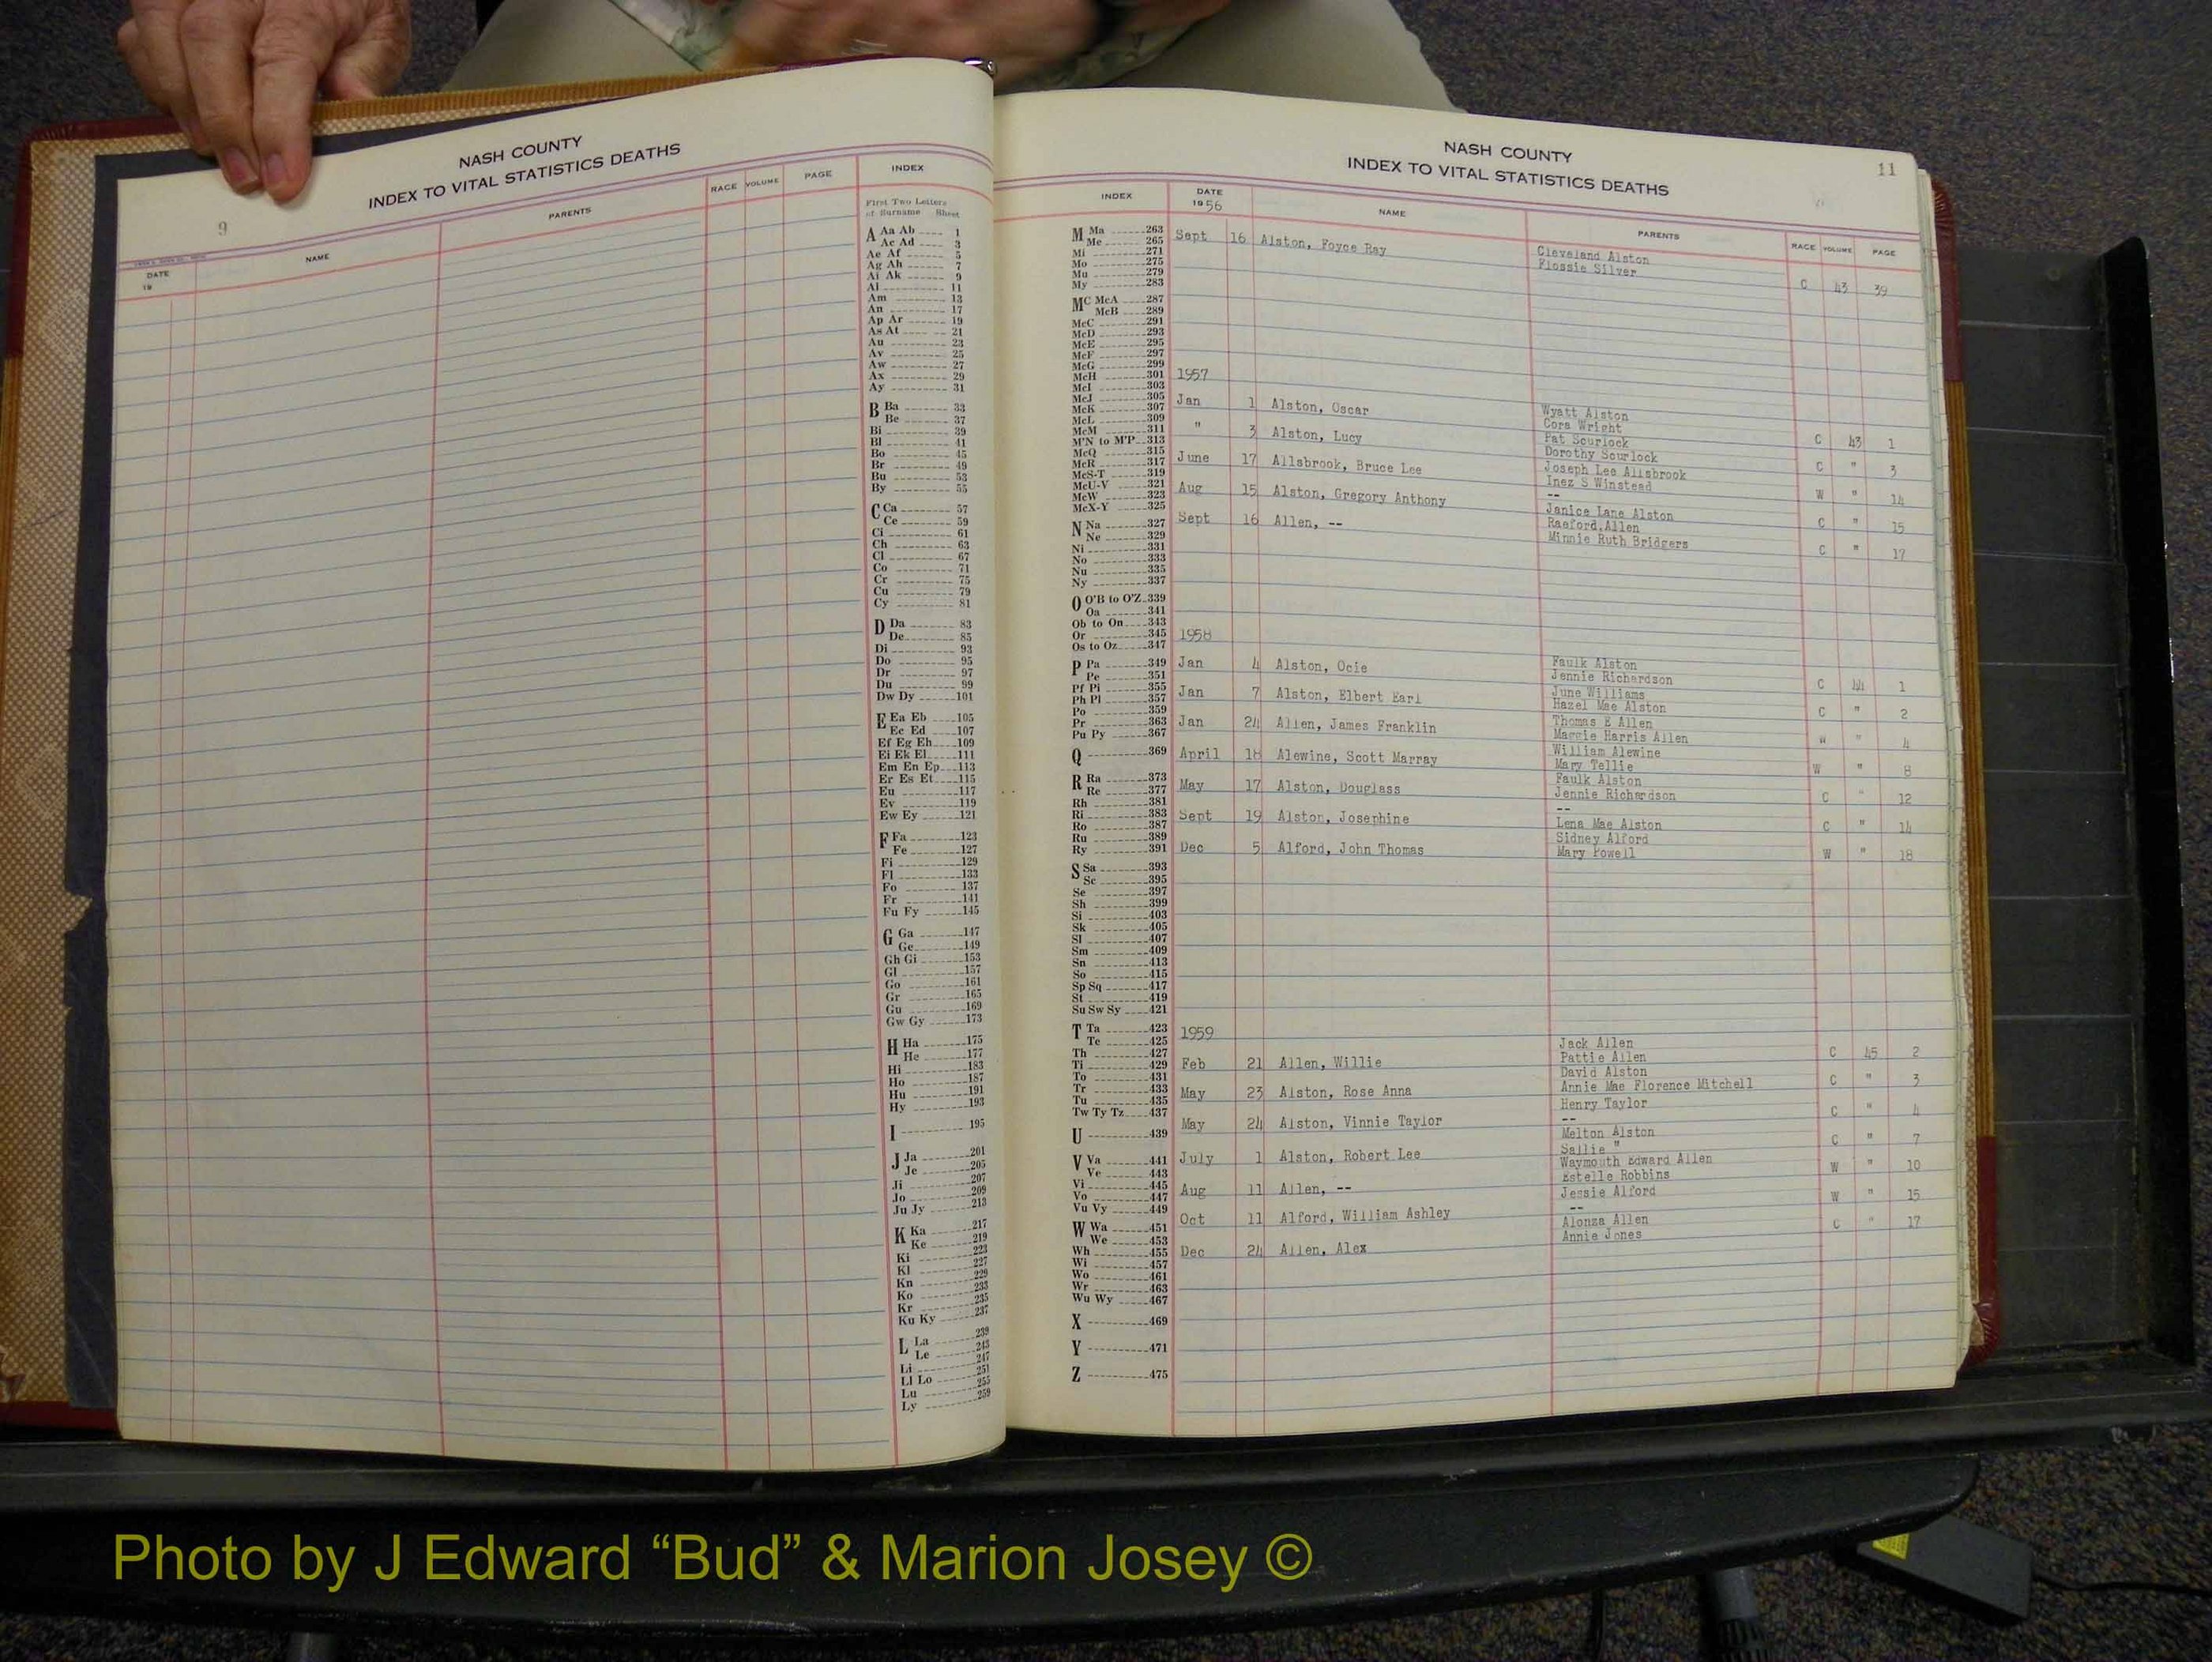 NASH COUNTY
INDEX TO VITAL STATISTICS DEATHS
9
DATE
19
NAME
PARENTS
RACE VOLUME PAGE
INDEX
First Two Letters
of Surname Sheet
A Aa Ab 1
Ac Ad 3
Ae Af 5
Ag Ah 7
Ai Ak 9
Al 11
Am 13
An 17
Ap Ar 19
As At 21
Au 23
Av 25
Aw 27
Ax 29
Ay 31
B Ba 33
Be 37
Bi 39
Bl 41
Bo 45
Br 49
Bu 53
By 55
C Ca 57
Ce 59
Ci 61
Ch 63
Cl 67
Co 71
Cr 75
Cu 79
Cy 81
D Da 83
De 85
Di 93
Do 95
Dr 97
Du 99
Dw Dy 101
E Ea Eb 105
Ec Ed 107
Ef Eg Eh 109
Ei Ek El 111
Em En Ep 113
Er Es Et 115
Eu 117
Ev 119
Ew Ey 121
F Fa 123
Fe 127
Fi 129
Fl 133
Fo 137
Fr 141
Fu Fy 145
G Ga 147
Ge 149
Gh Gi 153
Gl 157
Go 161
Gr 165
Gu 169
Gw Gy 173
H Ha 175
He 177
Hi 183
Ho 187
Hu 191
Hy 193
I 195
J Ja 201
Je 205
Ji 207
Jo 209
Ju Jy 213
K Ka 217
Ke 219
Ki 223
Kl 227
Kn 229
Ko 233
Kr 235
Ku Ky 237
L La 239
Le 243
Li 247
Ll Lo 251
Lu 255
Ly 259
NASH COUNTY
INDEX TO VITAL STATISTICS DEATHS
11
INDEX
DATE
1956
NAME
PARENTS
RACE VOLUME PAGE
M Ma 263
Me 265
Mi 271
Mo 275
Mu 279
My 283
MC McA 287
McB 289
McC 291
McD 293
McE 295
McF 297
McG 299
McH 301
McI 303
McJ 305
McK 307
McL 309
McM 311
M'N to M'P 313
McQ 315
McR 317
McS-T 319
McU-V 321
McW 323
McX-Y 325
N Na 327
Ne 329
Ni 331
No 333
Nu 335
Ny 337
O O'B to O'Z 339
Oa 341
Ob to On 343
Or 345
Os to Oz 347
P Pa 349
Pe 351
Pf Pi 355
Ph Pl 357
Po 359
Pr 363
Pu Py 367
Q 369
R Ra 373
Re 377
Rh 381
Ri 383
Ro 387
Ru 389
Ry 391
S Sa 393
Sc 395
Se 397
Sh 399
Si 403
Sk 405
Sl 407
Sm 409
Sn 413
So 415
Sp Sq 417
St 419
Su Sw Sy 421
T Ta 423
Te 425
Th 427
Ti 429
To 431
Tr 433
Tu 435
Tw Ty Tz 437
U 439
V Va 441
Ve 443
Vi 445
Vo 447
Vu Vy 449
W Wa 451
We 453
Wh 455
Wi 457
Wo 461
Wr 463
Wu Wy 467
X 469
Y 471
Z 475
Sept 16 Alston, Foyce Ray Cleveland Alston
Flossie Silver C 43 39
1957
Jan 1 Alston, Oscar Wyatt Alston
Cora Wright C 43 1
" 3 Alston, Lucy Pat Scurlock
Dorothy Scurlock C " 3
June 17 Allsbrook, Bruce Lee Joseph Lee Allsbrook
Inez S Winstead W " 14
Aug 15 Alston, Gregory Anthony --
Janice Lane Alston C " 15
Sept 16 Allen, -- Raeford Allen
Minnie Ruth Bridgers C " 17
1958
Jan 4 Alston, Ocie Faulk Alston
Jennie Richardson C 44 1
Jan 7 Alston, Elbert Earl June Williams
Hazel Mae Alston C " 2
Jan 24 Allen, James Franklin Thomas E Allen
Maggie Harris Allen W " 4
April 18 Alewine, Scott Marray William Alewine
Mary Tellie W " 8
May 17 Alston, Douglass Faulk Alston
Jennie Richardson C " 12
Sept 19 Alston, Josephine --
Lena Mae Alston C " 14
Dec 5 Alford, John Thomas Sidney Alford
Mary Powell W " 18
1959
Feb 21 Allen, Willie Jack Allen
Pattie Allen C 45 2
May 23 Alston, Rose Anna David Alston
Annie Mae Florence Mitchell C " 3
May 24 Alston, Vinnie Taylor Henry Taylor
-- C " 4
July 1 Alston, Robert Lee Melton Alston
Sallie " C " 7
Aug 11 Allen, -- Waymouth Edward Allen
Estelle Robbins W " 10
Oct 11 Alford, William Ashley Jessie Alford
-- W " 15
Dec 24 Allen, Alex Alonza Allen
Annie Jones C " 17
Photo by J Edward “Bud” & Marion Josey ©